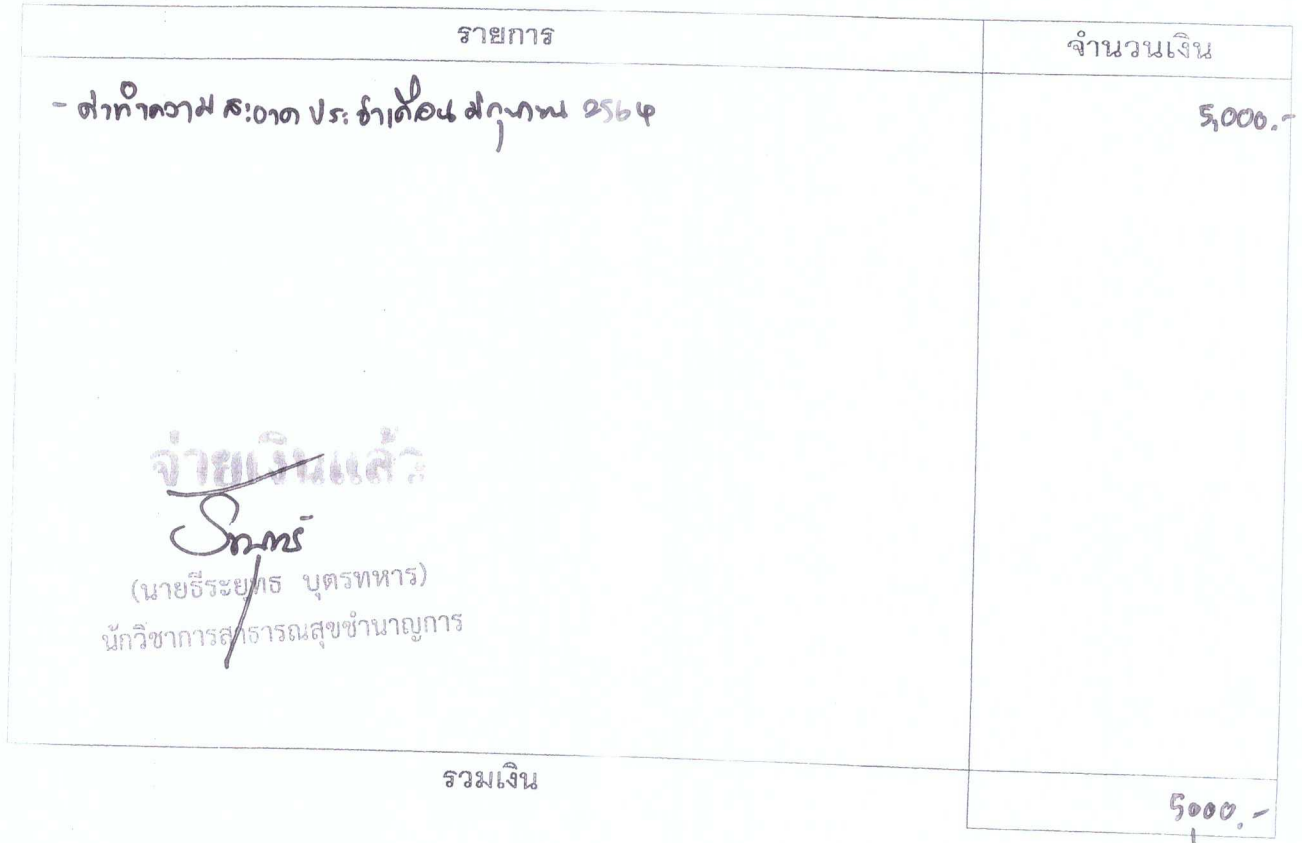 รายการ
จำนวนเงิน
- ค่าทำความสะอาด ประจำเดือน มิถุนายน 2564
5,000.-
จ่ายเงินแล้ว
(นายธีระยุทธ บุตรทหาร)
นักวิชาการสาธารณสุขชำนาญการ
รวมเงิน
5,000.-